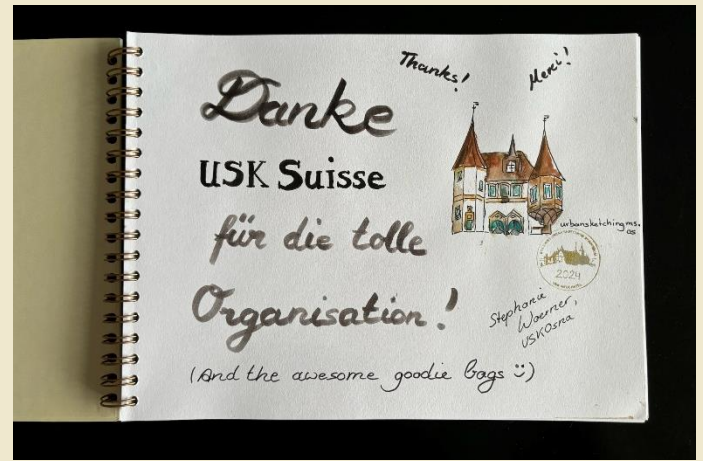 Thanks!
Merci!
Danke
USK Suisse
für die tolle
Organisation!
urbansketchingms.
os
2024
Stephanie
Woerner,
USKOsna
(And the awesome goodie bags ü)